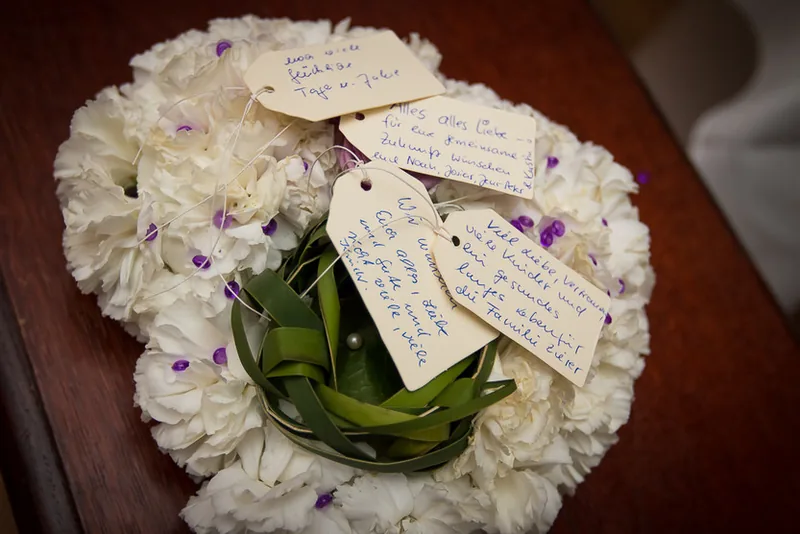 noch viele
glückliche
Tage u. Jahre
Alles alles Liebe
für eure gemeinsame
Zukunft wünschen
euch Noah,
Wir wünschen
Euch alles, Liebe
und Gute und
viele, viele
Viel Liebe, Vertrauen,
viele Kinder und
ein gesundes
langes Leben für
die Familie